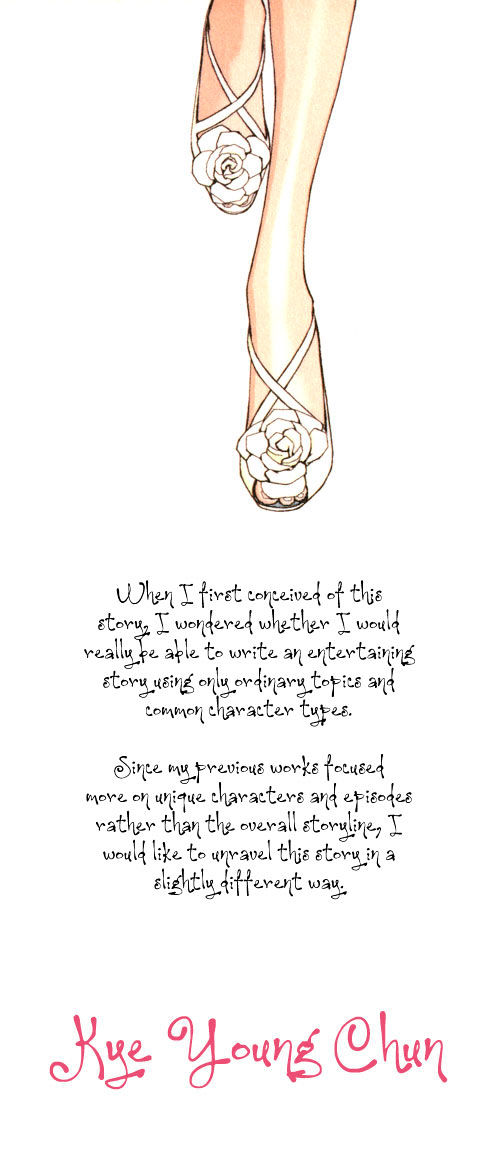 When I first conceived of this
story, I wondered whether I would
really be able to write an entertaining
story using only ordinary topics and
common character types.
Since my previous works focused
more on unique characters and episodes
rather than the overall storyline, I
would like to unravel this story in a
slightly different way.
Kye Young Chun